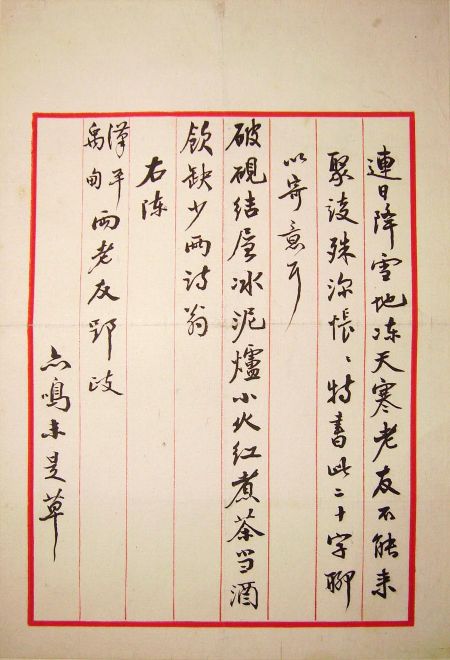 連日降雪地冻天寒老友不能来
聚谈殊深悵〻特書此二十字聊
以寄意耳
破硯结层冰泥爐小火红煮茶当酒
饮缺少两诗翁
右陈
漢平
禹甸
两老友郢政
亦鳴未是草